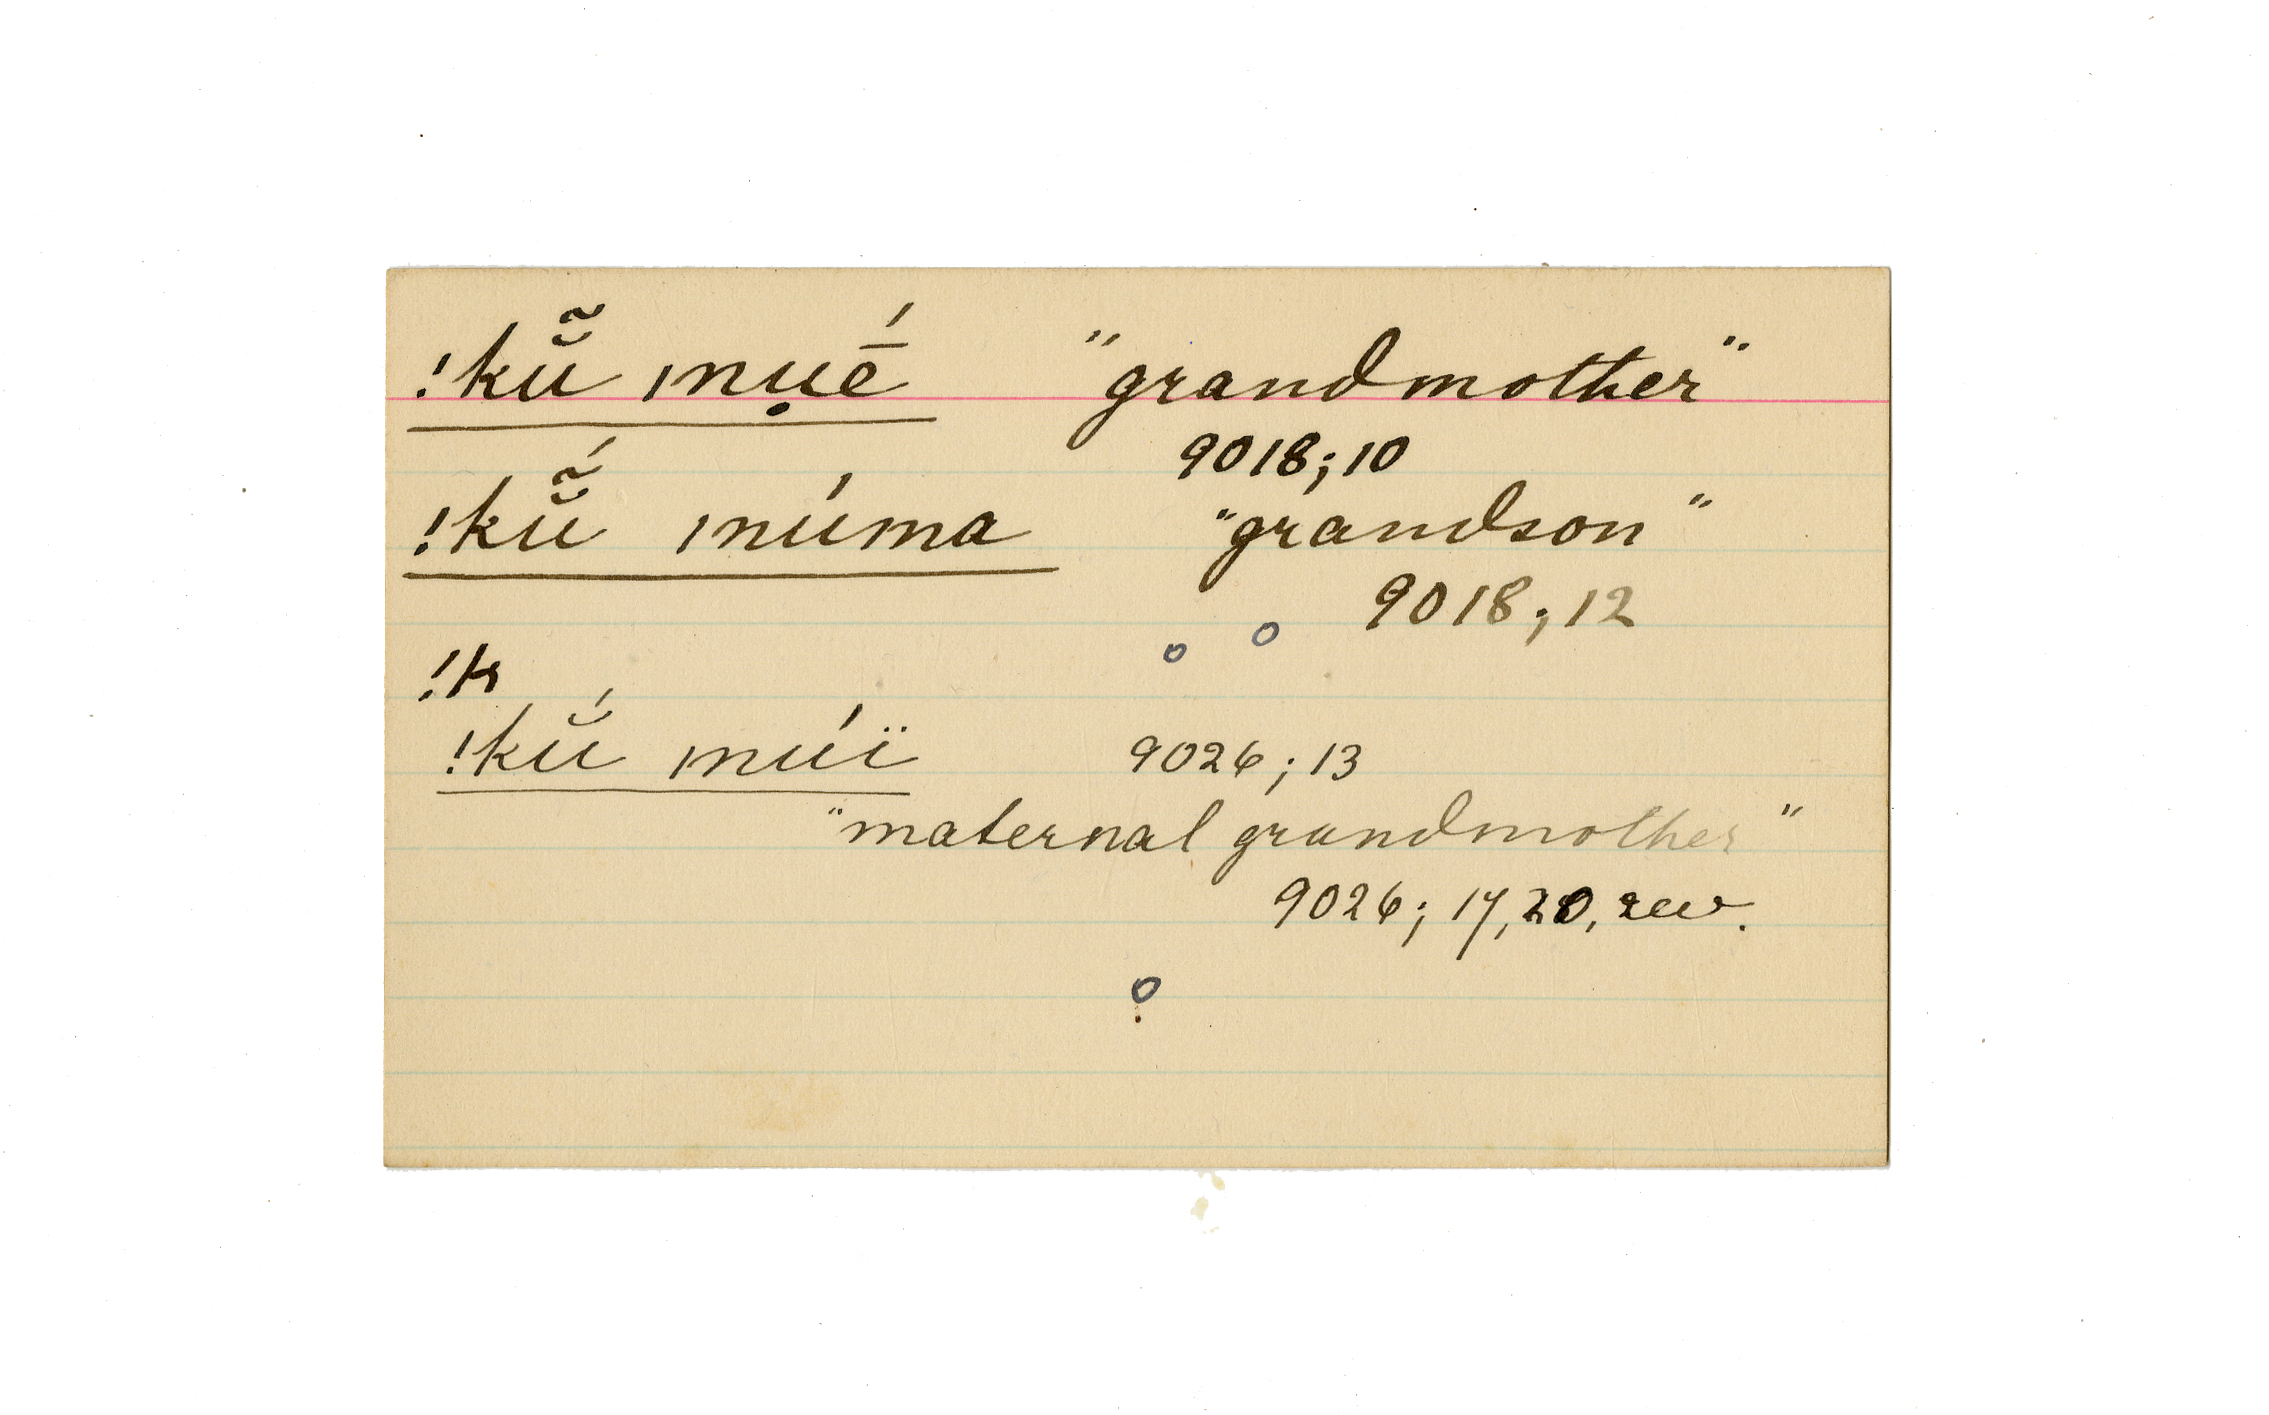 !kŭ̃ ınụḗ "grandmother"
9018; 10
!kŭ̃́ ınúma "grandson"
9018; 12
!k
!kŭ́ ınúï 9026; 13
"maternal grandmother"
9026; 17, 20, rev.